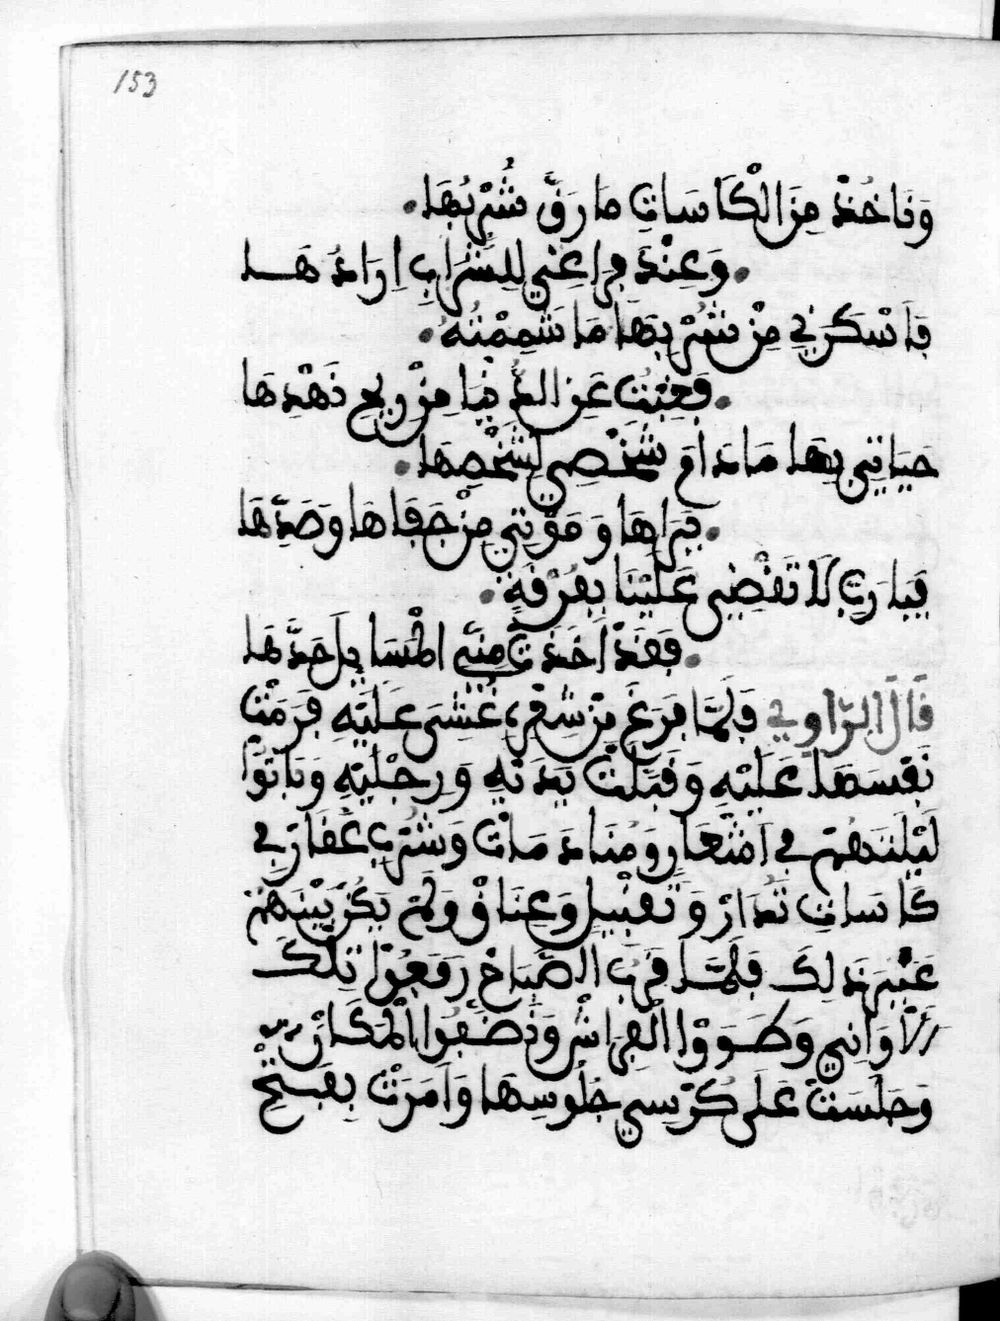 153
وَنَاخُذْ مِنَ الْكَاسَاتِ مَا رَقَّ شُرْبُهَا.
.وَعِنْدَ فِرَاغِي لِلشَّرَابِ اِرَادُهَــا
فَاَسْكَرَنِي مِنْ شُرْبِهَا مَا شَمِمْتُهُ.
.فَغِبْتُ عَنِ الدُّنْيَا مِنْ رِيحِ نَهْدِهَا
حَيَاتِي بِهَا مَا دَامَ شَخْصِي لِشَخْصِهَا.
.يَرَاهَا وَمَوْتِي مِنْ جَفَاهَا وَصَدِّهَا
فَيَا رَبِّ لَا تَقْضِي عَلَيْنَا بِفُرْقَةٍ.
.فَقَدْ اَخَذَتْ مِنِّي الْحَسَا بِلَحَدِّهَا
قَالَ الرَّاوِي فَلَمَّا فَرَغَ مِنْ شِعْرِهِ غُشِيَ عَلَيْهِ فَرَمَتْ
نَفْسَهَا عَلَيْهِ وَقَبَّلَتْ يَدَيْهِ وَرِجْلَيْهِ وَبَاتُوا
لَيْلَتَهُمْ فِي اَشْعَارٍ وَمُنَادَمَاتٍ وَشُرْبِ عُقَارٍ فِي
كَاسَاتٍ تُدَارْ وَتَقْبِيلٍ وَعِنَاقْ وَلَمْ يَكُنْ بَيْنَهُمْ
غَيْرَ ذَلِكَ فَلَمَّا قَرُبَ الصَّبَاحْ رَفَعُوا تِلْكَ
الْاَوَانِي وَطَوَوْا الْفِرَاشْ وَنَضَّفُوا الْمَكَانْ
وَجَلَسَتْ عَلَى كُرْسِيِ جُلُوسِهَا وَاَمَرَتْ بِفَتْحِ